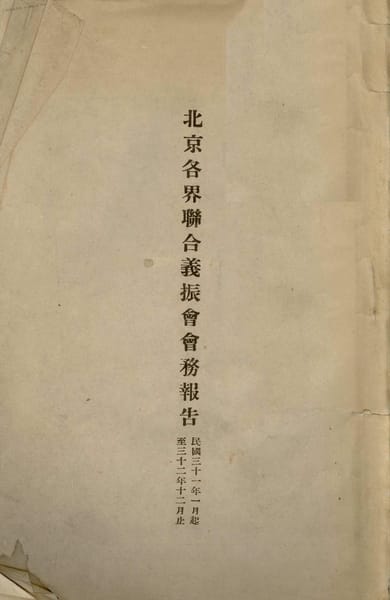 北京各界聯合義振會會務報告
民國三十一年一月起
至三十二年十二月止